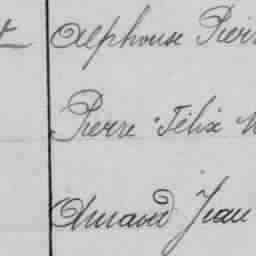 Alphonse Pierr
Pierre Félix
Armand Jean